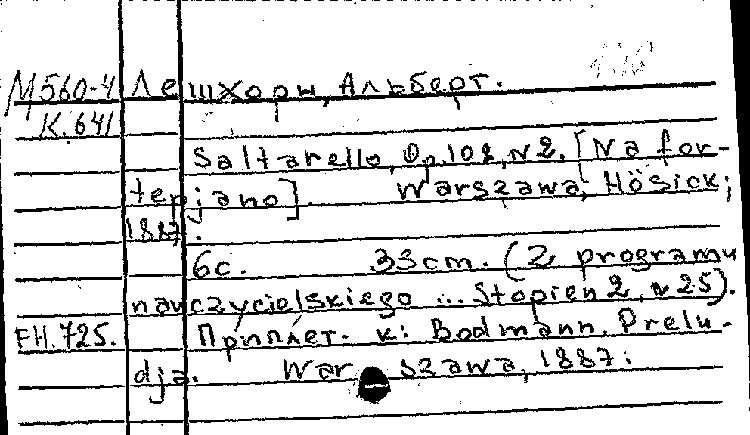 М560-4 Лешхорн, Альберт.
К.641
Saltarello, Op.102, N2. [Na for-
tepjano]. Warszawa, Hösick,
1887.
6с. 33cm. (Z programu
nauczycielskiego ... Stopień 2, N 25).
FH.725. Приплёт. к: Bodmann. Prelu-
dja. Warszawa, 1887.